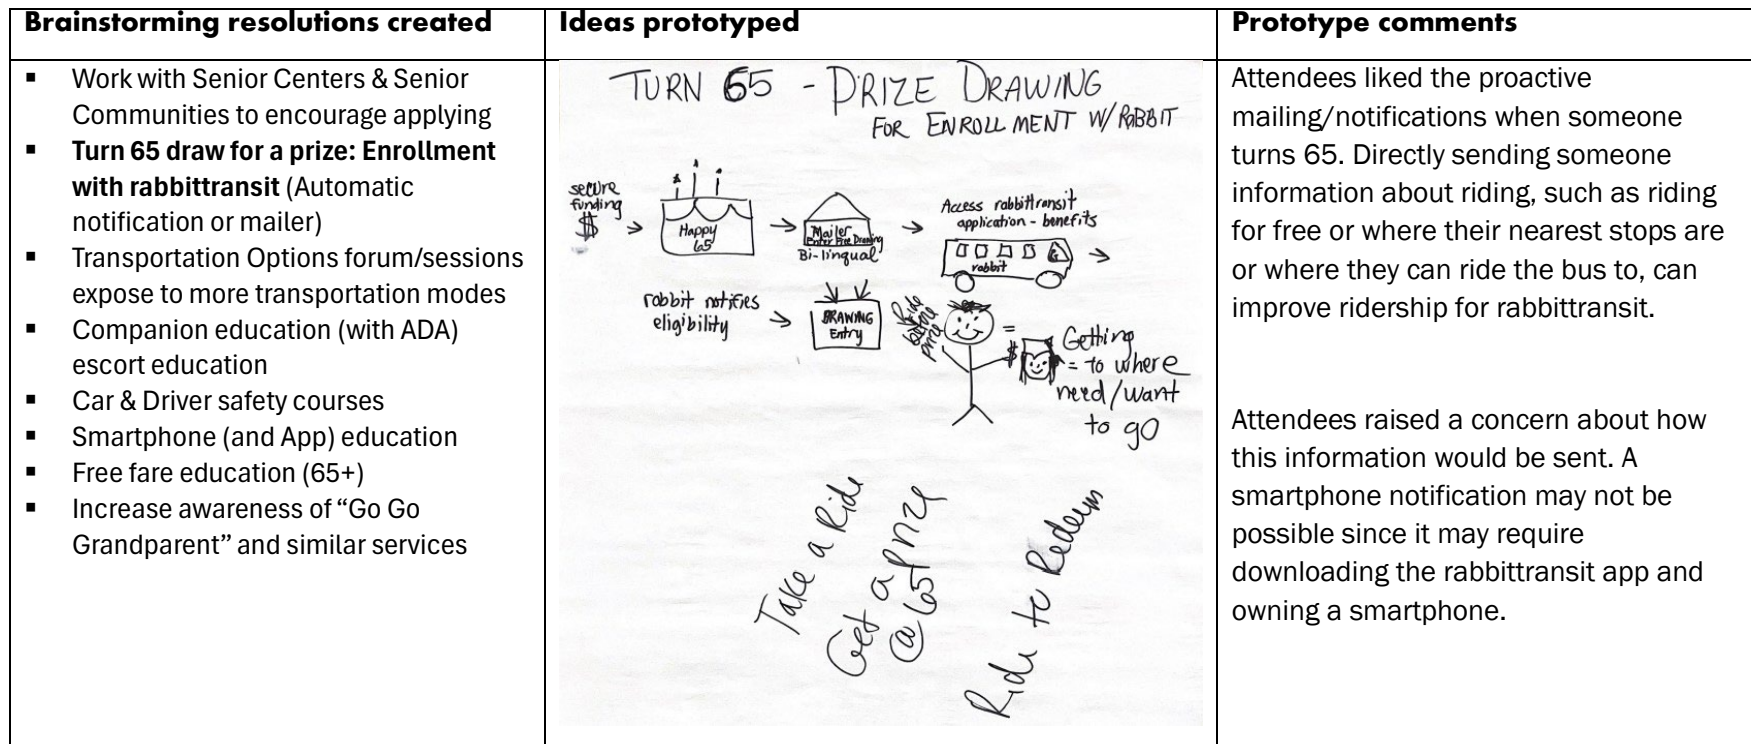 Brainstorming resolutions created
Ideas prototyped
Prototype comments
▪ Work with Senior Centers & Senior
Communities to encourage applying
▪ Turn 65 draw for a prize: Enrollment
with rabbittransit (Automatic
notification or mailer)
▪ Transportation Options forum/sessions
expose to more transportation modes
▪ Companion education (with ADA)
escort education
▪ Car & Driver safety courses
▪ Smartphone (and App) education
▪ Free fare education (65+)
▪ Increase awareness of “Go Go
Grandparent” and similar services
TURN 65 - PRIZE DRAWING
FOR ENROLLMENT W/ RABBIT
secure
funding
$
Happy
65
Mailer
Enter Free Drawing
Bi-lingual
Access rabbittransit
application - benefits
rabbit
rabbit notifies
eligibility
DRAWING
Entry
Ride
before
prize
=
$
Getting
= to where
need/want
to go
Take a Ride
Get a prize
@ 65
Ride to Redeem
Attendees liked the proactive
mailing/notifications when someone
turns 65. Directly sending someone
information about riding, such as riding
for free or where their nearest stops are
or where they can ride the bus to, can
improve ridership for rabbittransit.
Attendees raised a concern about how
this information would be sent. A
smartphone notification may not be
possible since it may require
downloading the rabbittransit app and
owning a smartphone.